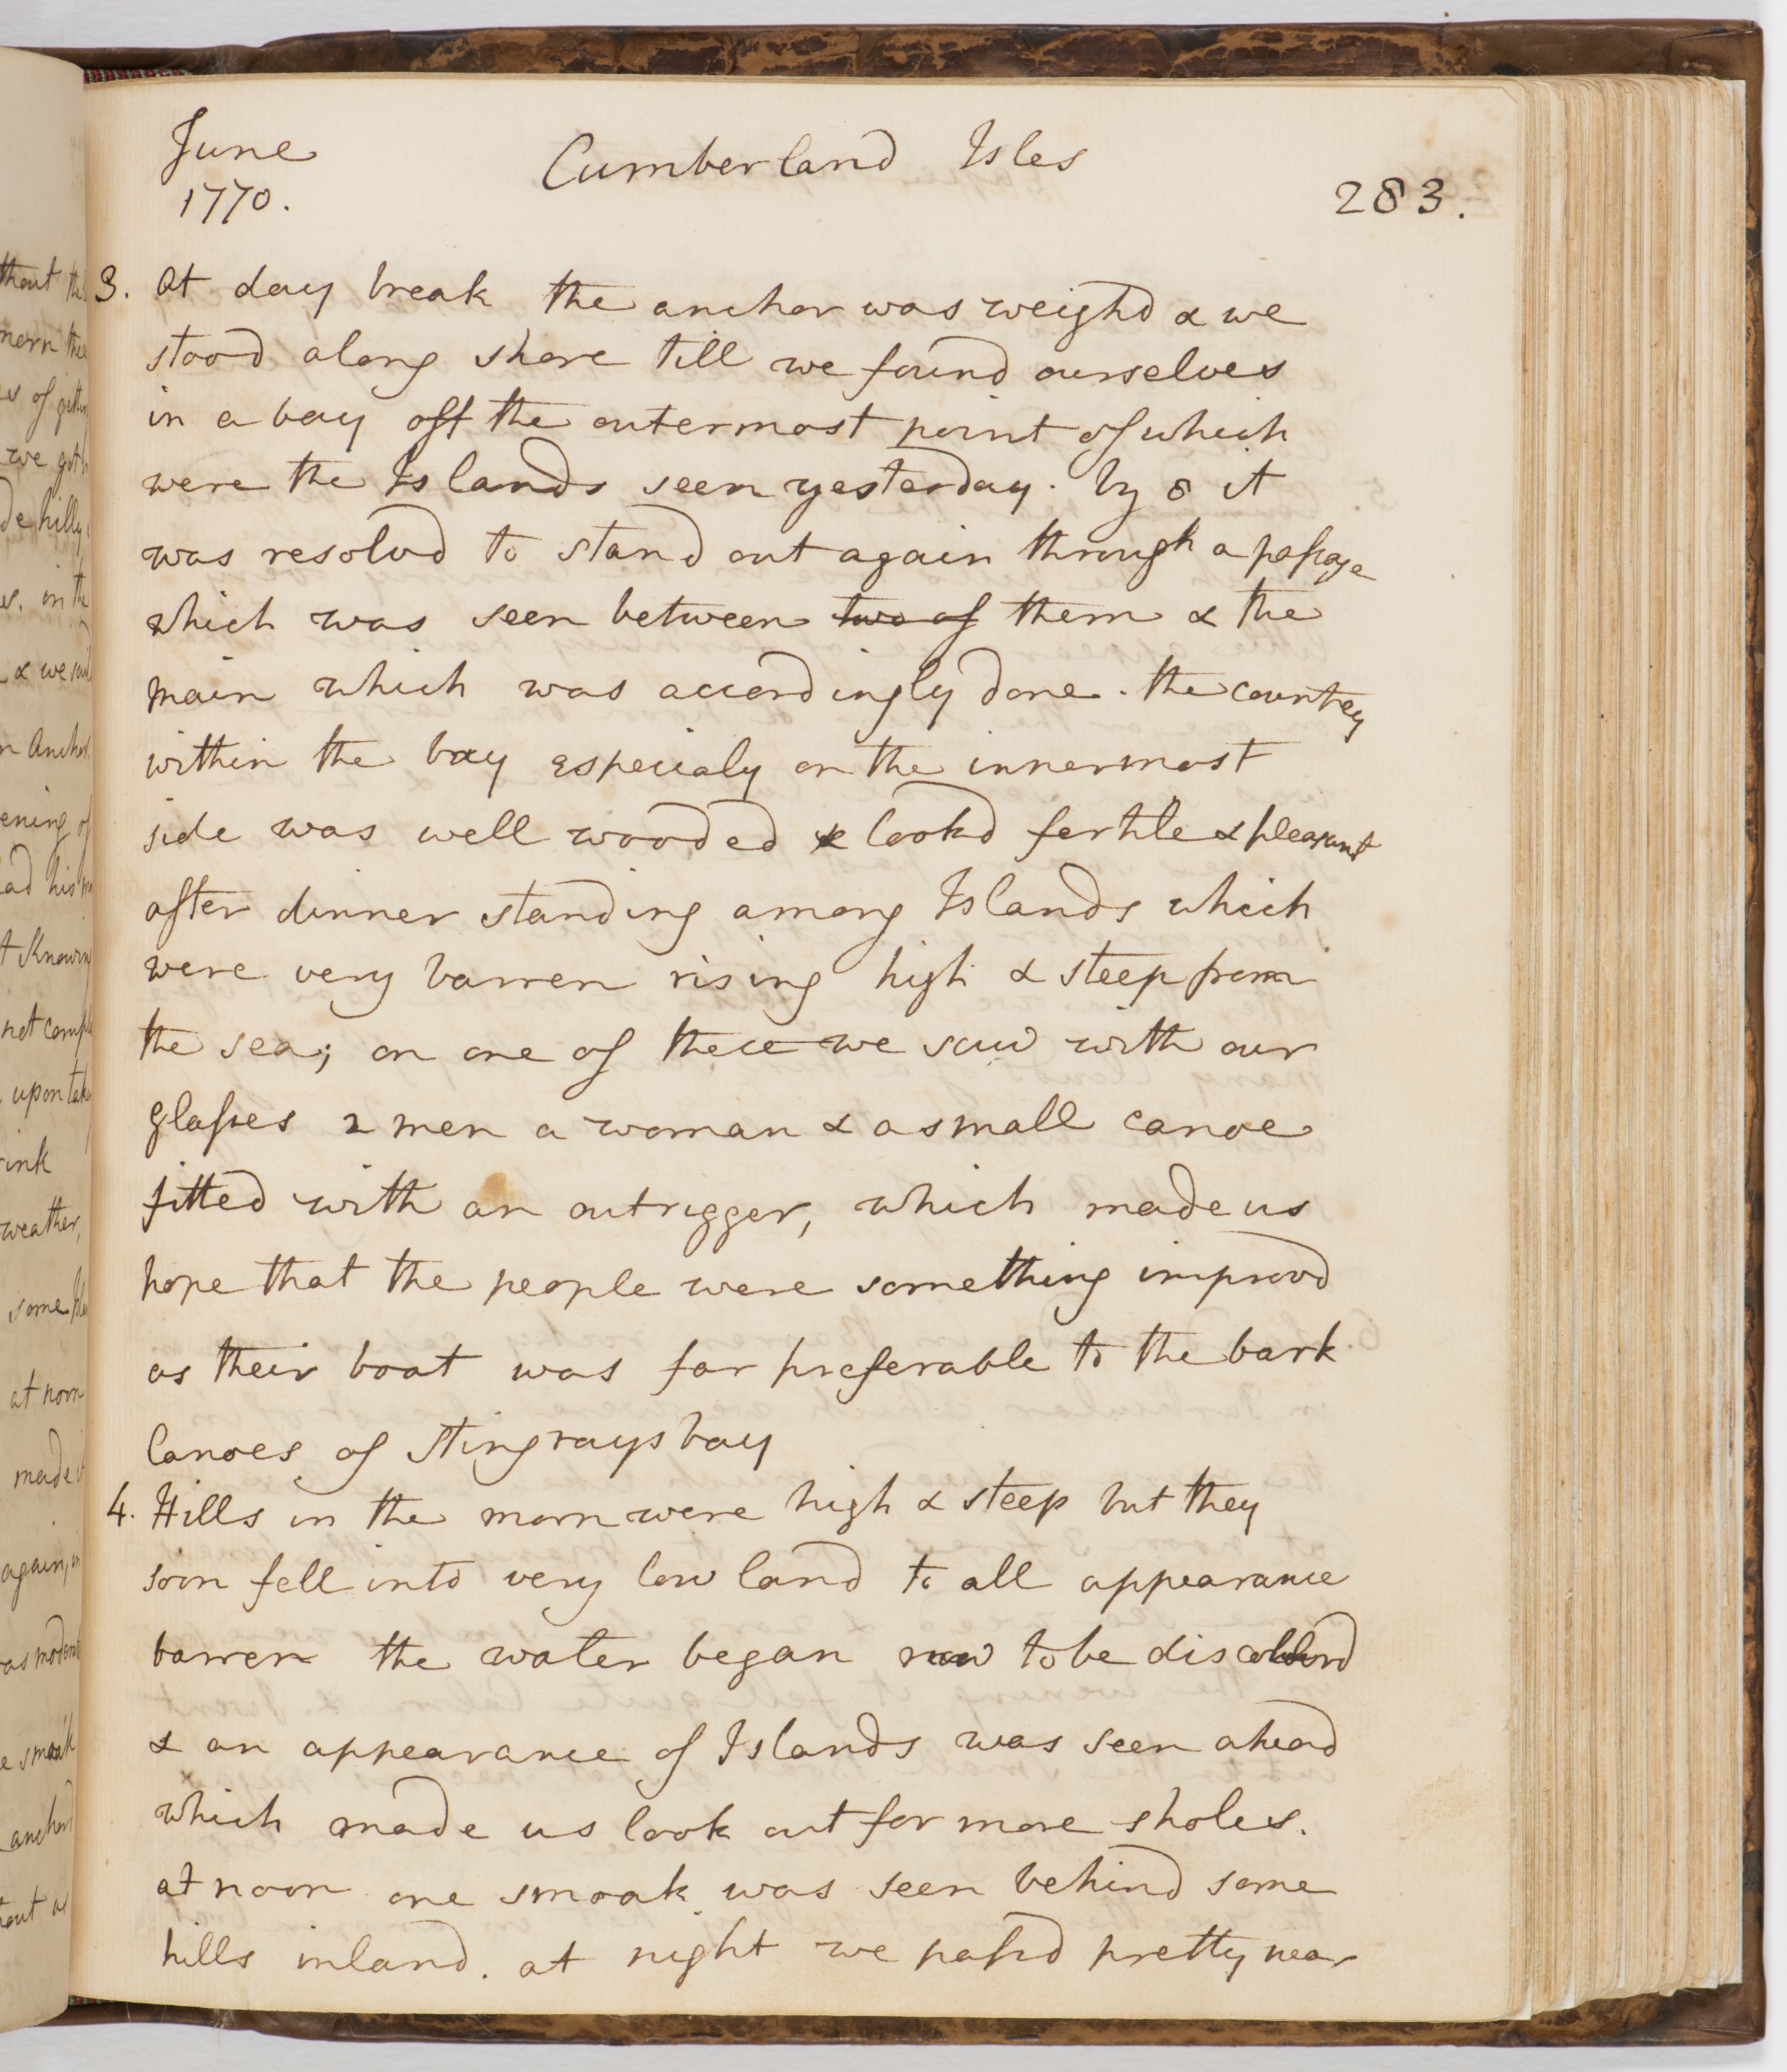 June
1770.
Cumberland Isles
283.
3. At day break the anchor was weighd & we
stood along shore till we found ourselves
in a bay off the outermost point of which
were the Islands seen yesterday. by 8 it
was resolvd to stand out again through a passage
which was seen between two of them & the
main which was accordingly done. the countrey
within the bay especialy on the innermost
side was well wooded & lookd fertile & pleasant
after dinner standing among Islands which
were very barren rising high & steep from
the sea; on one of these we saw with our
glasses 2 men a woman & a small canoe
fitted with an outrigger, which made us
hope that the people were something improvd
as their boat was far preferable to the bark
Canoes of Stingrays bay
4. Hills in the morn were high & steep but they
soon fell into very low land to all appearance
barren the water began now to be discolourd
& an appearance of Islands was seen ahead
which made us look out for more sholes.
at noon one smoak was seen behind some
hills inland. at night we passd pretty near